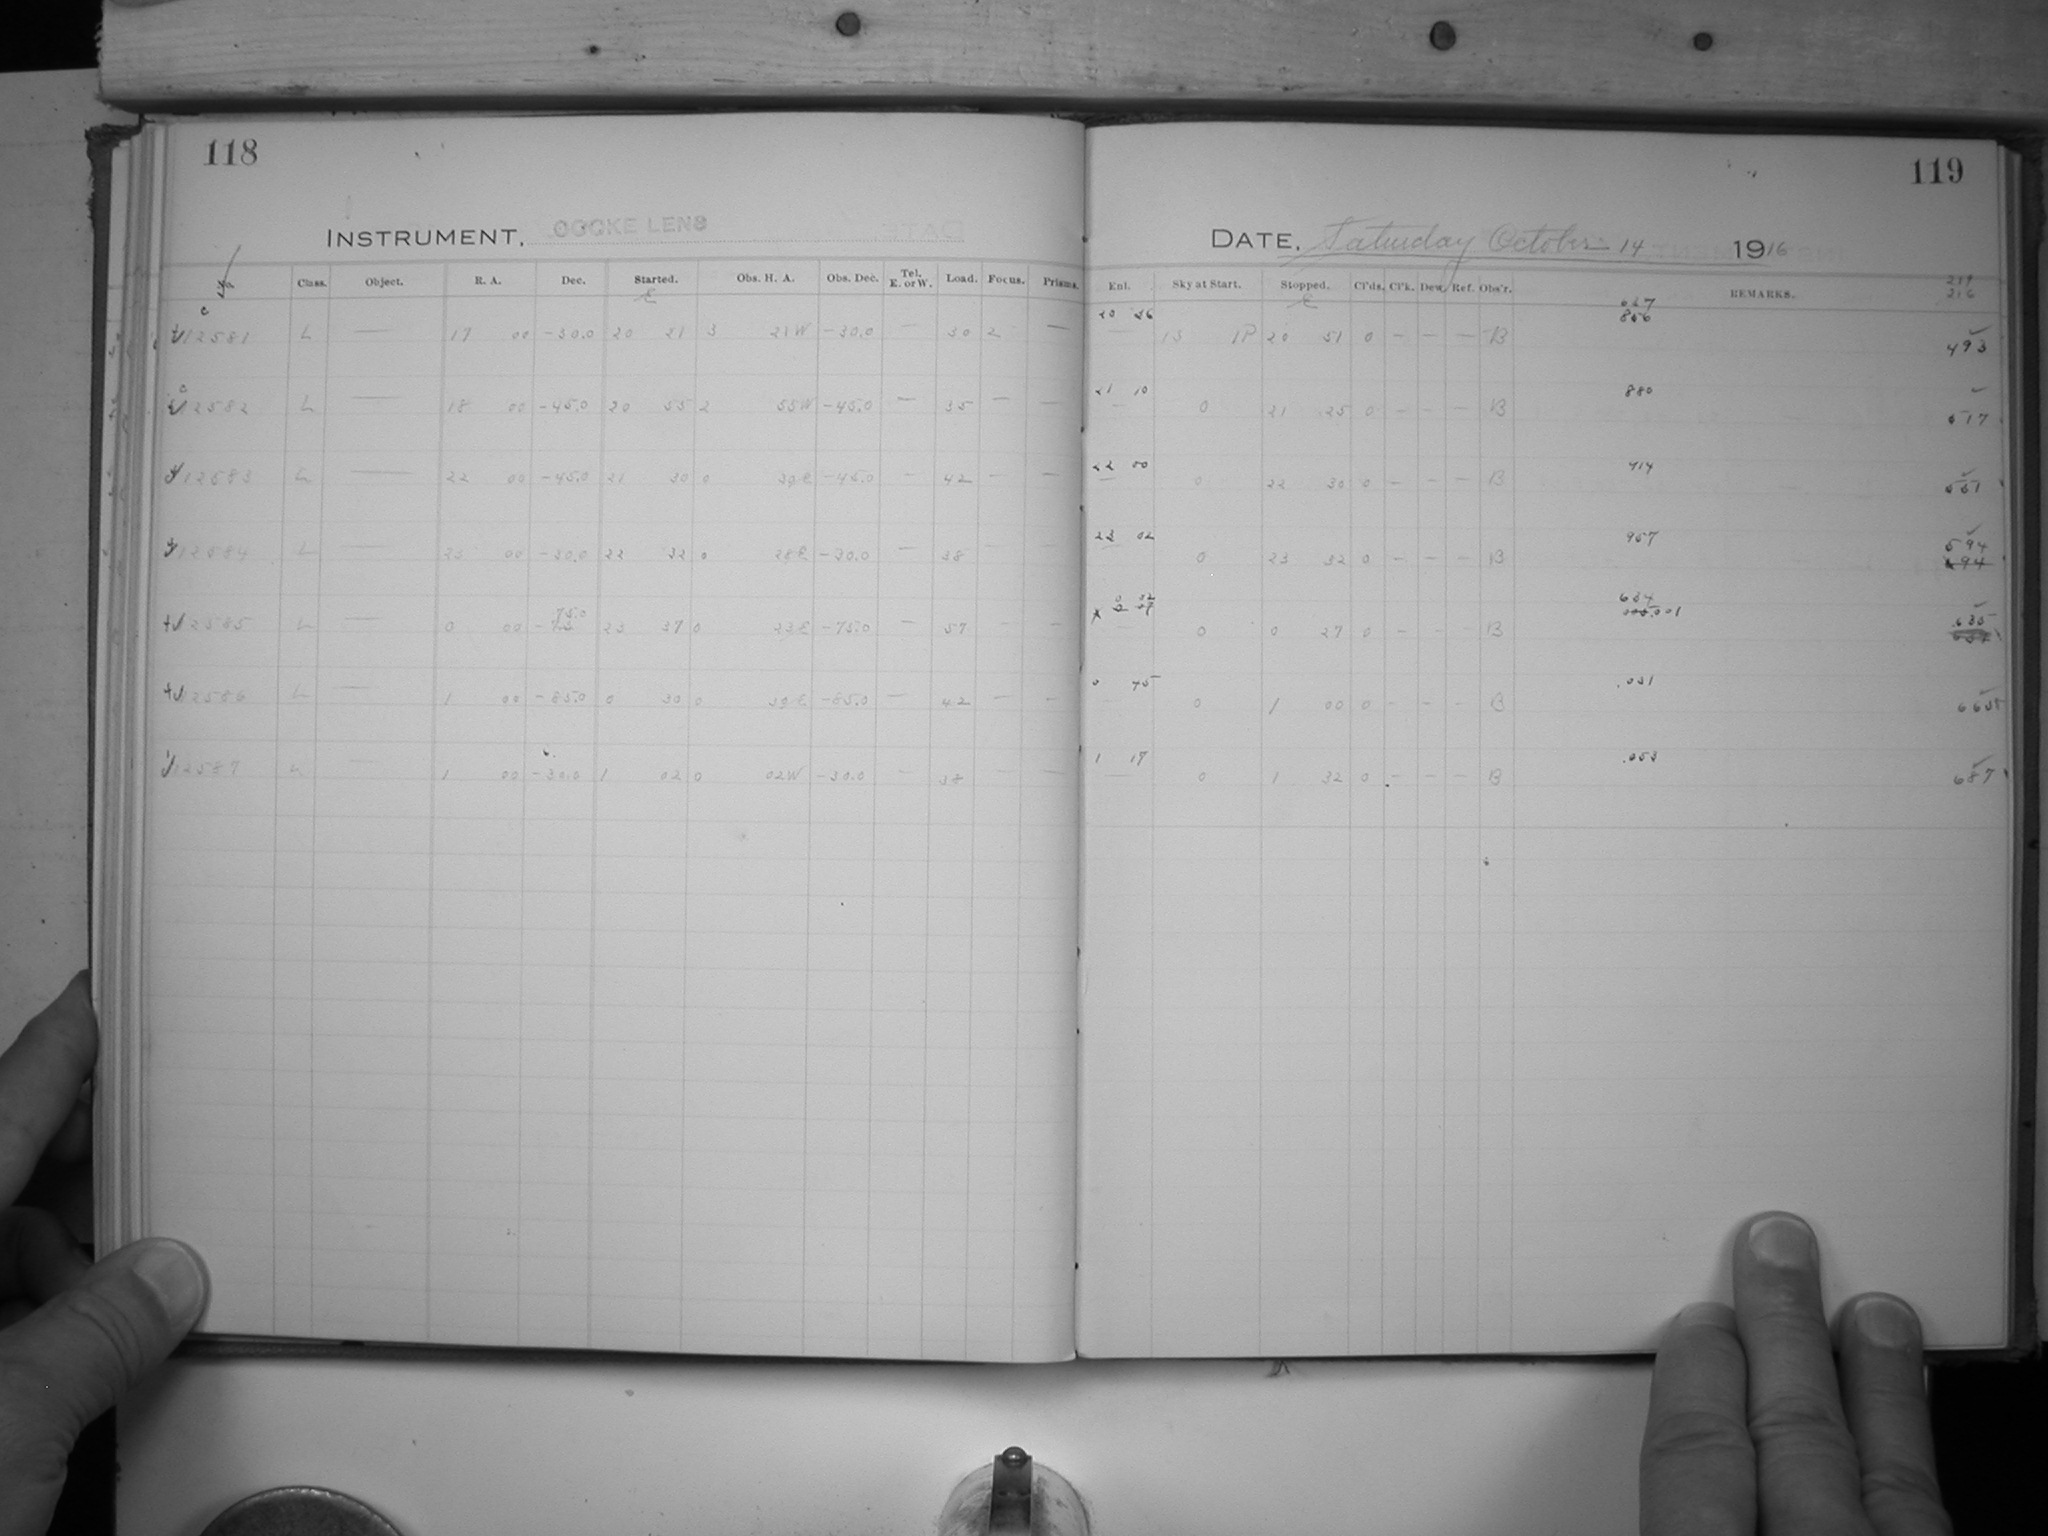 118
INSTRUMENT, COOKE LENS
No. Class. Object. R. A. Dec. Started. Obs. H. A. Obs. Dec. Tel. E. or W. Load. Focus. Prisms.
12581 L — 17 00 -30.0 20 21 3 21W -30.0 — 30 2 —
12582 L — 18 00 -45.0 20 55 2 55W -45.0 — 35 — —
12583 L — 22 00 -45.0 21 30 0 30E -45.0 — 42 — —
12584 L — 23 00 -30.0 22 32 0 28E -30.0 — 38 — —
75.0
12585 L — 0 00 23 37 0 23E -75.0 — 57 — —
12586 L — 1 00 -85.0 0 30 0 30E -85.0 — 42 — —
12587 L — 1 00 -30.0 1 02 0 02W -30.0 — 38 — —
119
DATE, Saturday October 14 1916
Enl. Sky at Start. Stopped. Cl'ds. Cl'k. Dew. Ref. Obs'r. REMARKS.
217
216
20 36 856
13 1P 20 51 0 — — — B 493
21 10 880
— 0 21 25 0 — — — B 517
22 00 914
— 0 22 30 0 — — — B 551
23 02 957 594
— 0 23 32 0 — — — B
0 02 634
0 0 27 0 — — — B 635
0 45 .031
0 1 00 0 — — — B 665
1 17 .053
— 0 1 32 0 — — — B 687